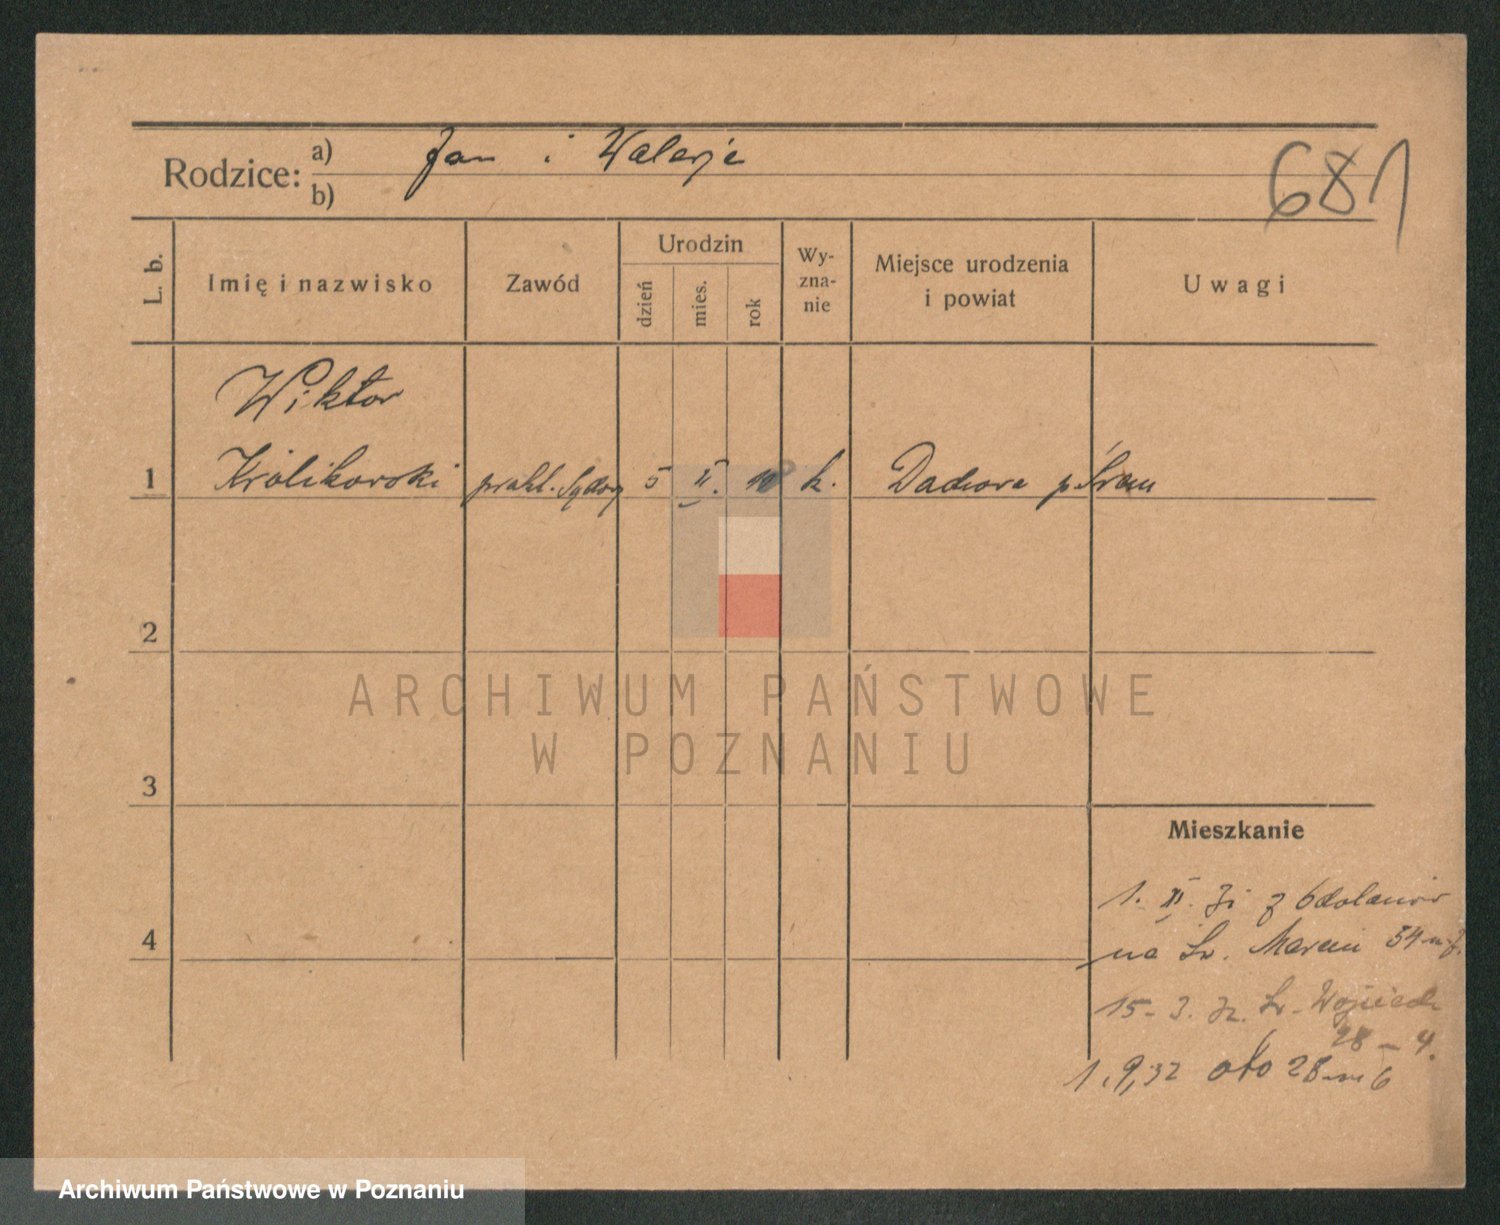 681
Rodzice: a) Jan i Walerje
b)
L. b.
Imię i nazwisko
Zawód
Urodzin
dzień
mies.
rok
Wy-
zna-
nie
Miejsce urodzenia
i powiat
Uwagi
Wiktor
1 Królikowski prakt. Sądow 5 II. 10 k. Dachowa p. Śrem
2
3
4
Mieszkanie
1. XI. 31 z Odolanów
na Św. Marcin 54 m.
15. 3. 32. Św. Wojciech
28 – 4.
1.9.32 oto 28 m 6
ARCHIWUM PAŃSTWOWE
W POZNANIU
Archiwum Państwowe w Poznaniu